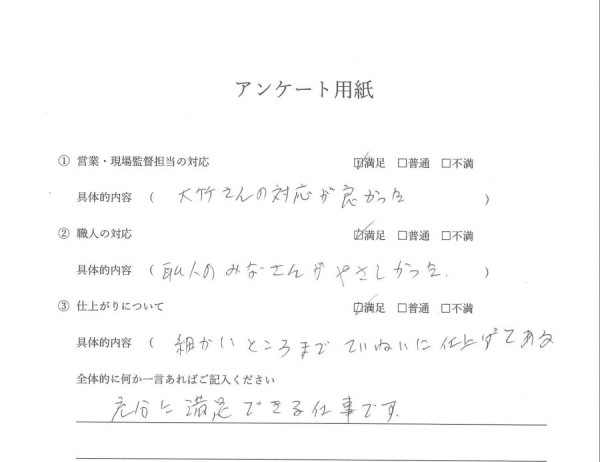 アンケート用紙
① 営業・現場監督担当の対応 ☑満足 □普通 □不満
具体的内容 ( 大竹さんの対応が良かった )
② 職人の対応 ☑満足 □普通 □不満
具体的内容 ( 職人のみなさんがやさしかった. )
③ 仕上がりについて ☑満足 □普通 □不満
具体的内容 ( 細かいところまでていねいに仕上げてある
全体的に何か一言あればご記入ください
充分に満足できる仕事です.